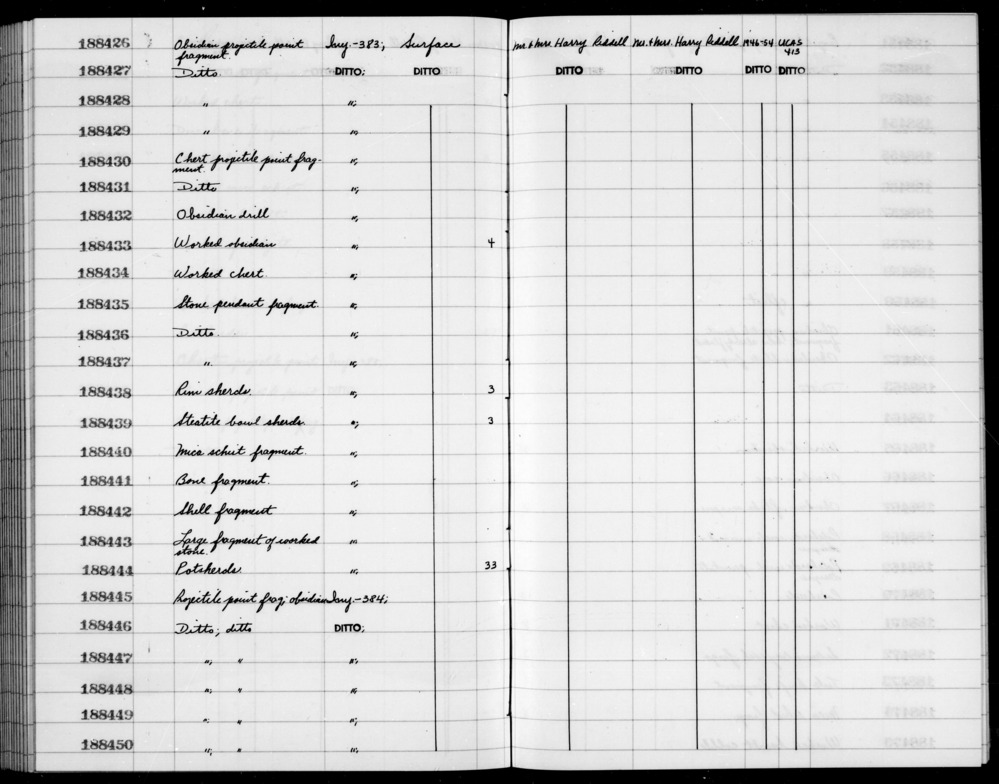 188426 Obsidian projectile point Iny.-383; Surface Mr. & Mrs. Harry Riddell Mr. & Mrs. Harry Riddell 1946-54 UCAS
fragment. 413
188427 Ditto DITTO; DITTO DITTO DITTO DITTO DITTO
188428 " ";
188429 " ";
188430 Chert projectile point frag- ";
ment.
188431 Ditto ";
188432 Obsidian drill ";
188433 Worked obsidian "; 4
188434 Worked chert ";
188435 Stone pendant fragment. ";
188436 Ditto. ";
188437 ". ";
188438 Rim sherds. "; 3
188439 Steatite bowl sherds. "; 3
188440 Mica schist fragment. ";
188441 Bone fragment. ";
188442 Shell fragment ";
188443 Large fragment of worked ";
stone.
188444 Potsherds. "; 33
188445 Projectile point frag; obsidian Iny.-384;
188446 Ditto; ditto DITTO;
188447 "; " ";
188448 "; " ";
188449 "; " ";
188450 "; " ";